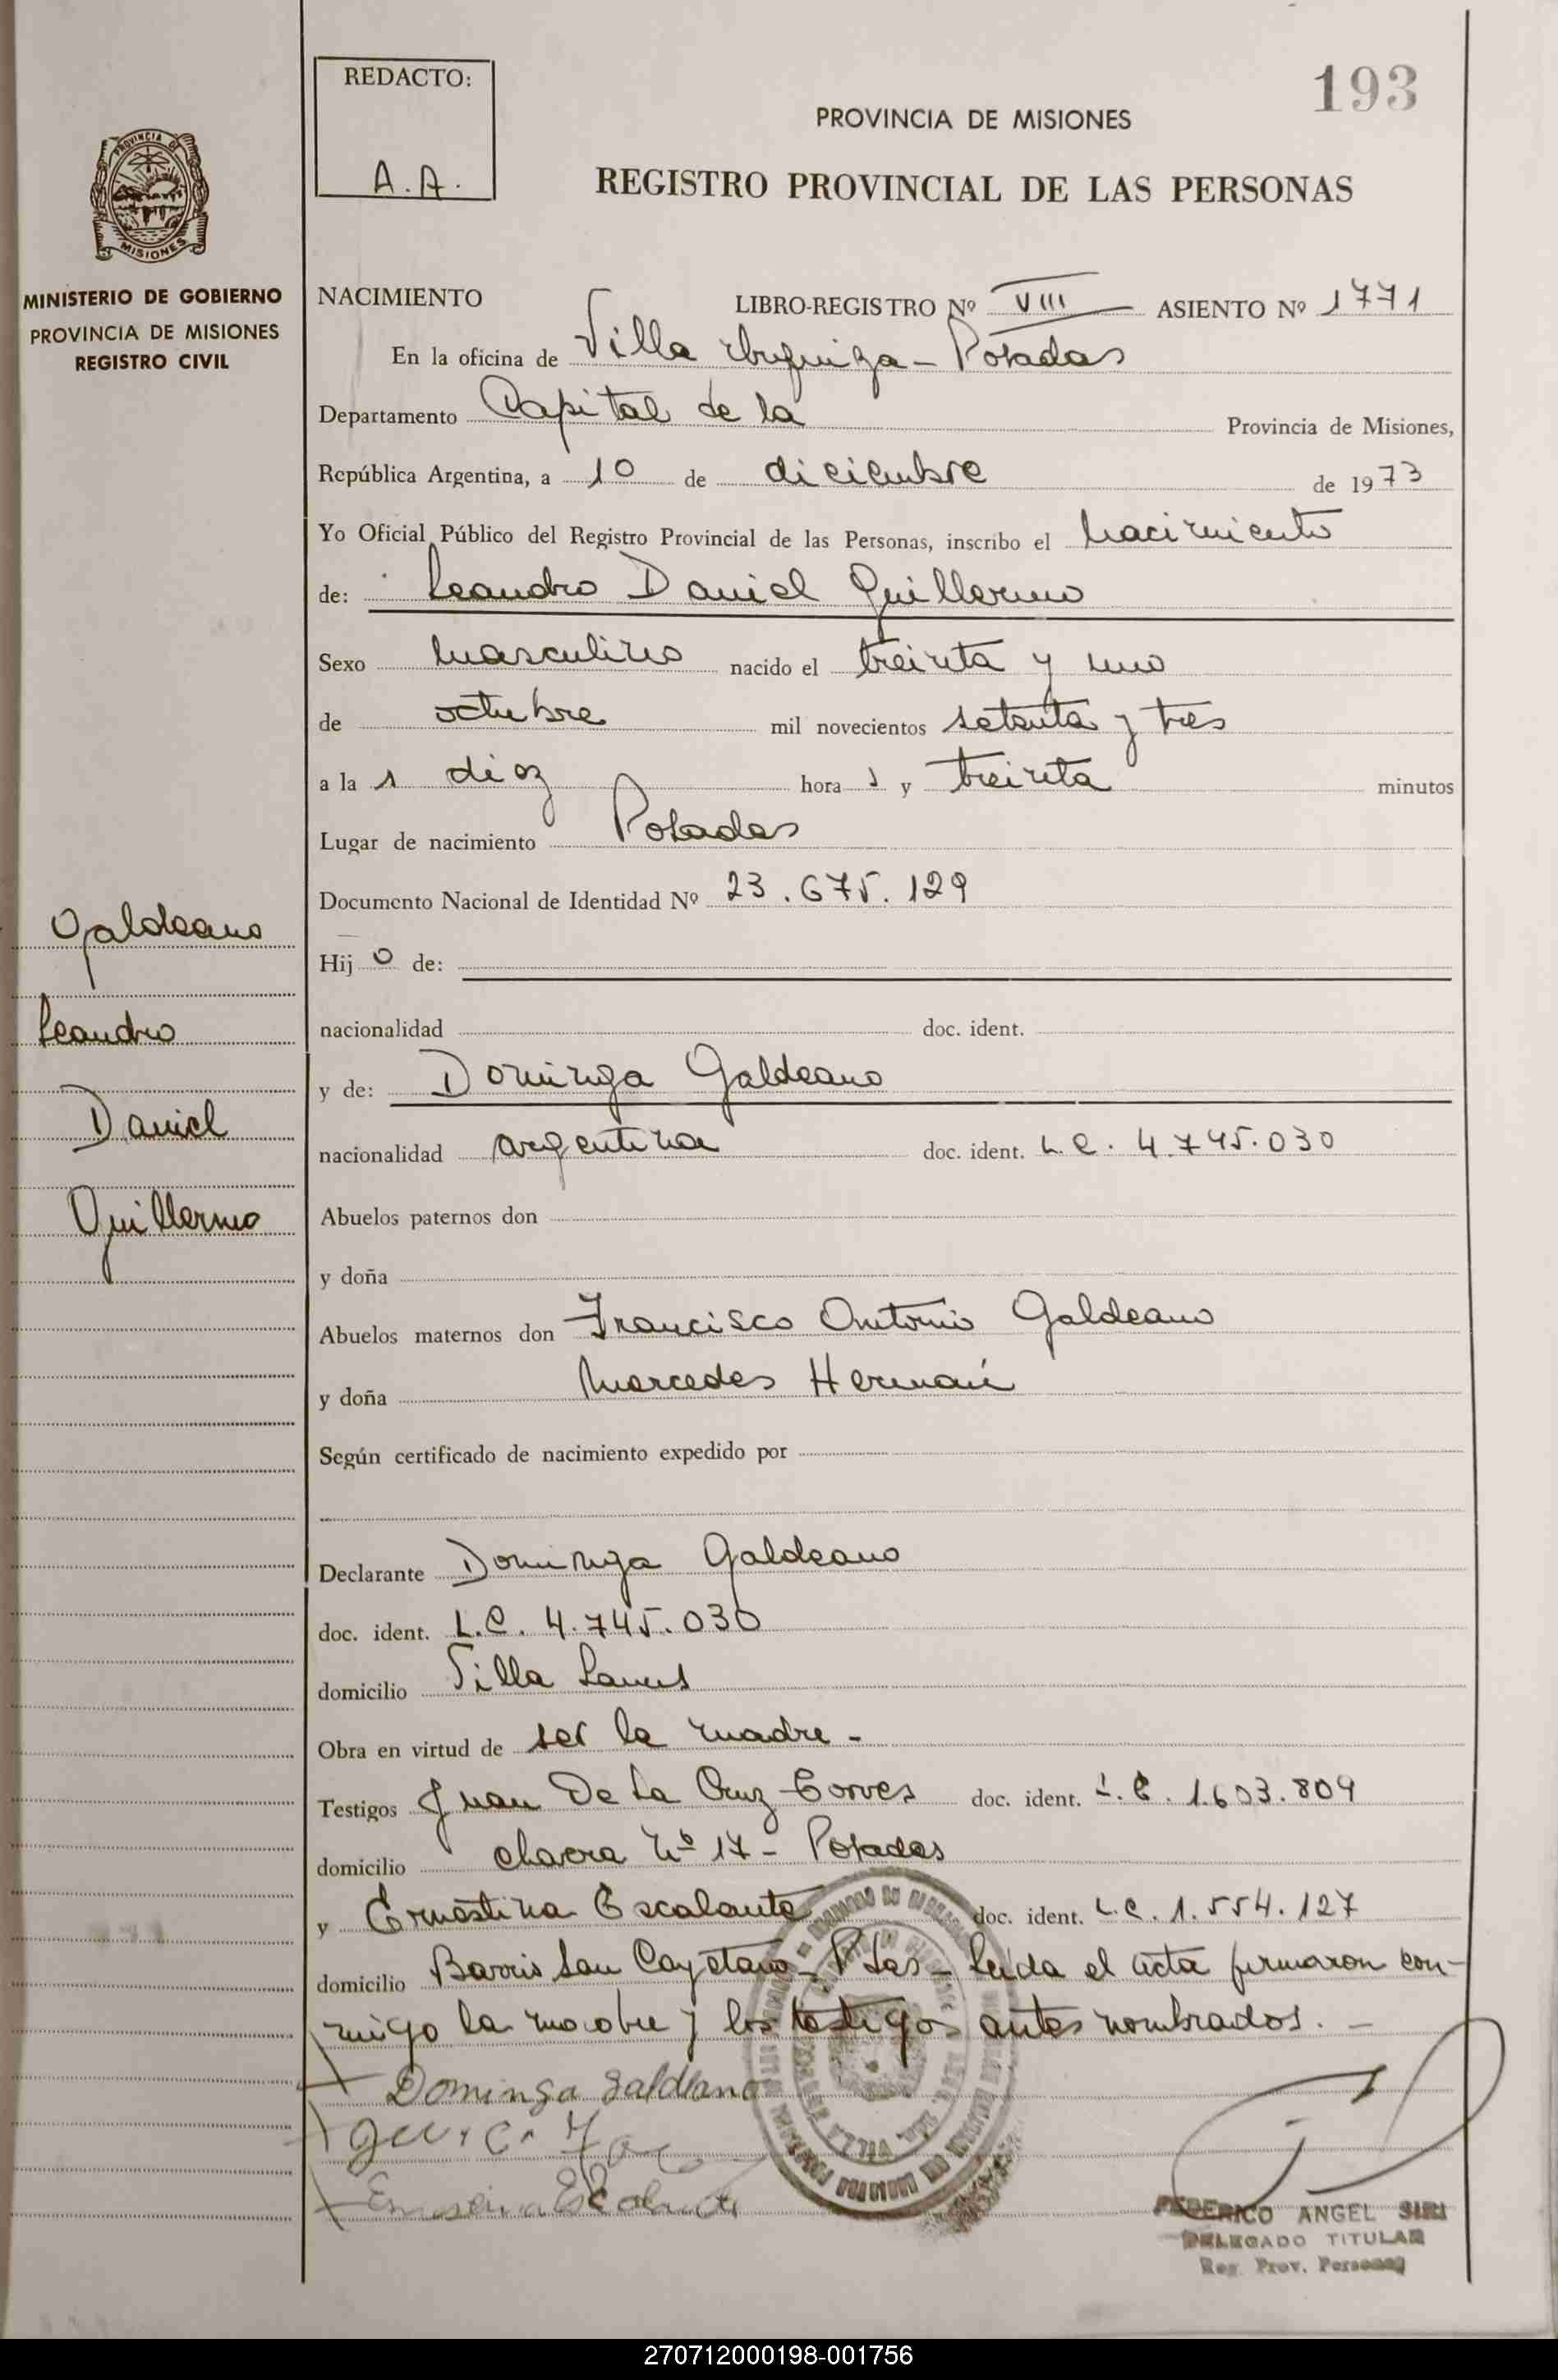 193
REDACTO:
A.A.
PROVINCIA DE MISIONES
REGISTRO PROVINCIAL DE LAS PERSONAS
PROVINCIA DE
MISIONES
MINISTERIO DE GOBIERNO
PROVINCIA DE MISIONES
REGISTRO CIVIL
NACIMIENTO LIBRO-REGISTRO Nº VIII ASIENTO Nº 1771
En la oficina de Villa Urquiza - Posadas
Departamento Capital de la Provincia de Misiones,
República Argentina, a 10 de diciembre de 1973
Yo Oficial Público del Registro Provincial de las Personas, inscribo el nacimiento
de: Leandro Daniel Guillermo
Sexo masculino nacido el treinta y uno
de octubre mil novecientos setenta y tres
a la s diez hora s y treinta minutos
Lugar de nacimiento Posadas
Documento Nacional de Identidad Nº 23.675.129
Galdeano
Leandro
Daniel
Guillermo
Hij o de:
nacionalidad doc. ident.
y de: Dominga Galdeano
nacionalidad argentina doc. ident. L.C. 4.745.030
Abuelos paternos don
y doña
Abuelos maternos don Francisco Antonio Galdeano
y doña Mercedes Hernán
Según certificado de nacimiento expedido por
Declarante Dominga Galdeano
doc. ident. L.C. 4.745.030
domicilio Villa Lanus
Obra en virtud de ser la madre -
Testigos Juan De La Cruz doc. ident. 1.603.809
domicilio chacra Nº 17 - Posadas
y Ernestina Escalante doc. ident. L.C. 1.554.127
domicilio Barrio San Cayetano - Pdas - Leída el acta firmaron con-
migo la madre y los testigos antes nombrados. -
Dominga Galdeano
FEDERICO ANGEL SIRI
DELEGADO TITULAR
Reg. Prov. Personas
270712000198-001756